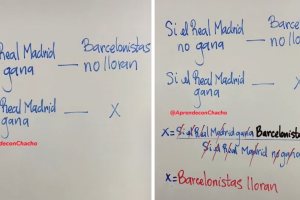 Real Madrid
gana
Barcelonistas
no lloran
Real Madrid
gana
X
conChacho
Si el Real Madrid
no gana
Si el Real Madrid
gana
@AprendeconChacho
X= Si el Real Madrid gana Barcelonist
Si el Real Madrid no gana
X= Barcelonistas lloran